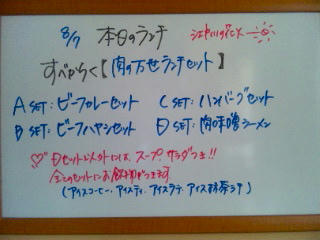 8/7 本日のランチ 江戸川の花火
すべからく【肉の万世ランチセット】
A SET: ビーフカレーセット C SET: ハンバーグセット
B SET: ビーフハヤシセット D SET: 肉味噌ラーメン
Dセット以外には、スープ、サラダつき!!
全てのセットにお飲物がつきます
(アイスコーヒー、アイスティ、アイスラテ、アイス抹茶ラテ)